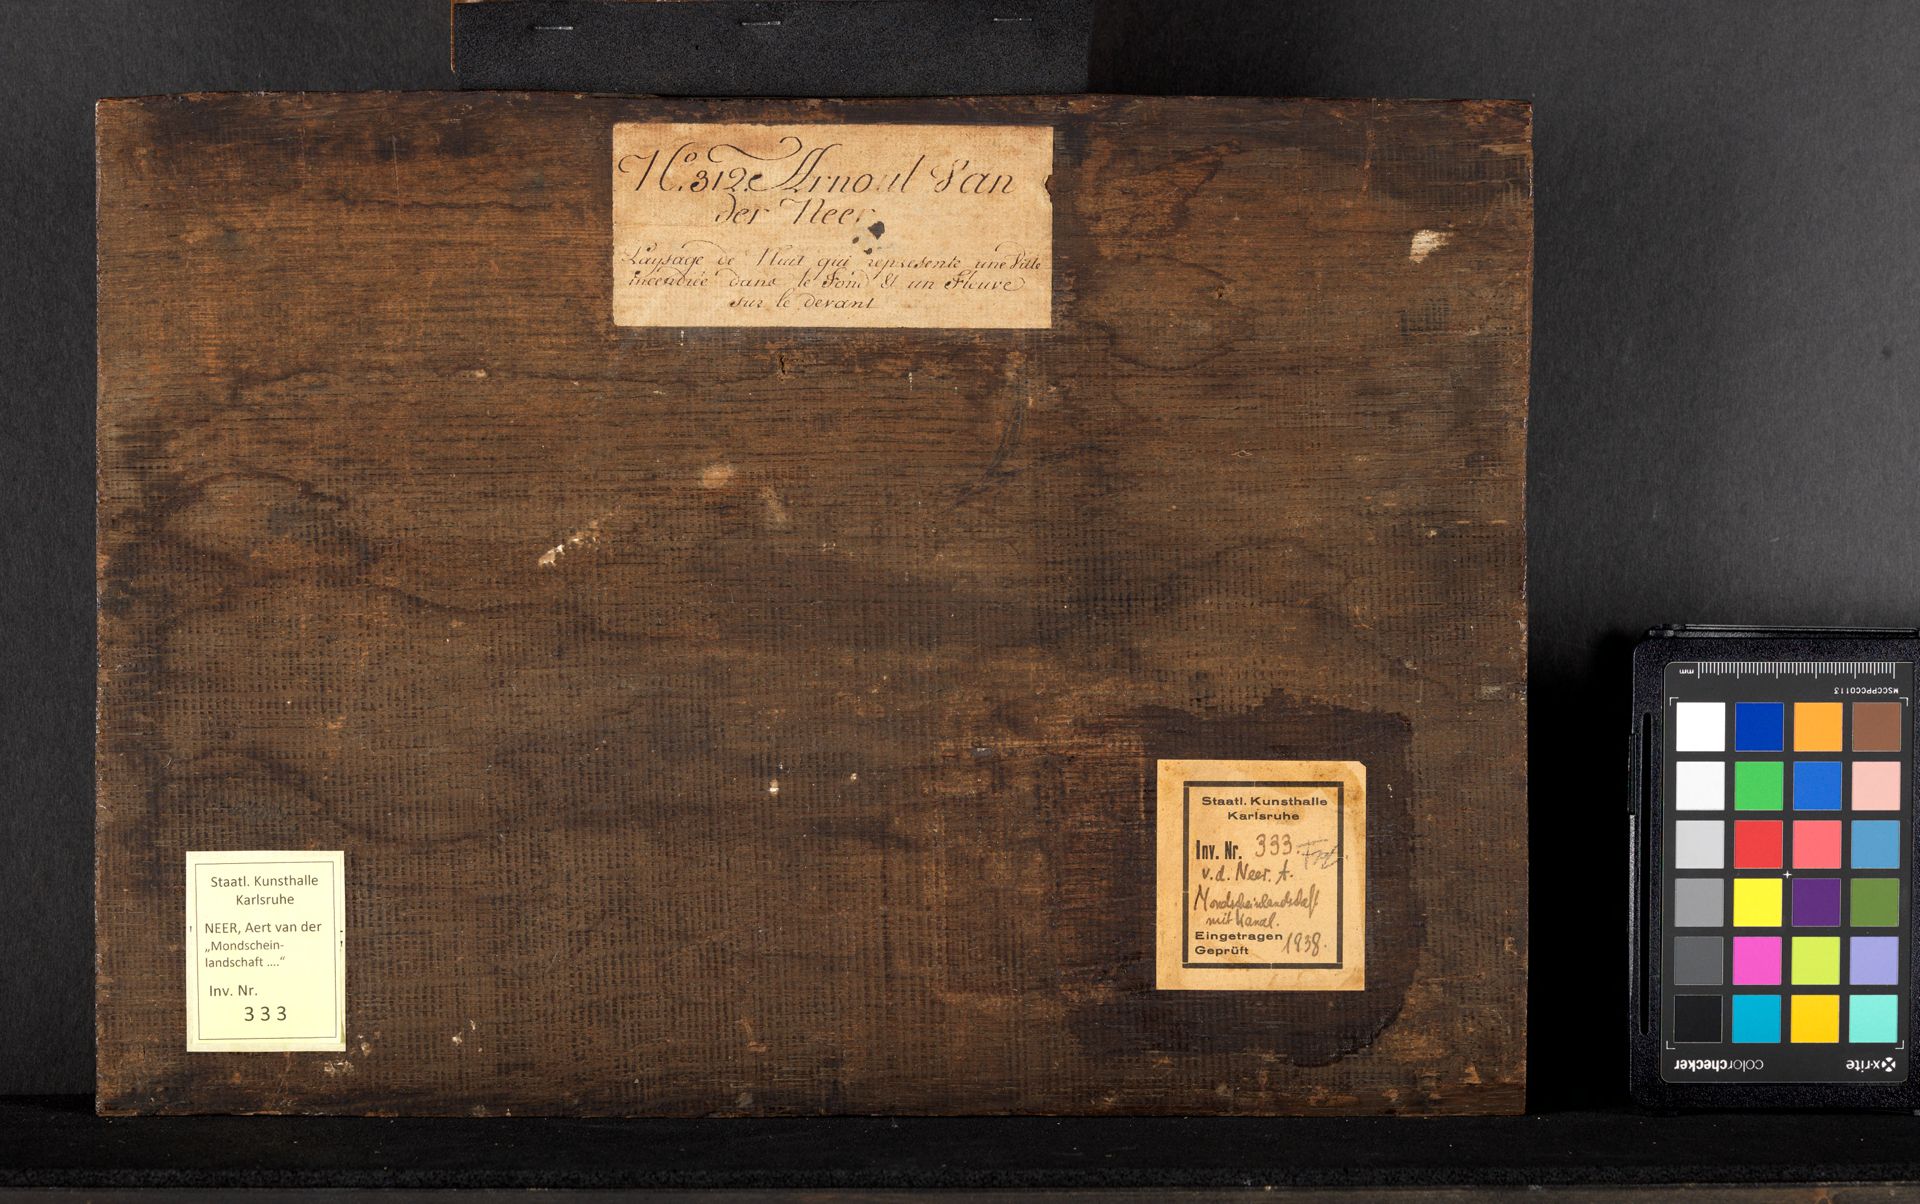 N.º 312. Arnoul Van
der Neer
Paysage de Nuit qui represente une Ville
incendiée dans le Fond & un Fleuve
sur le devant
Staatl. Kunsthalle
Karlsruhe
NEER, Aert van der
„Mondschein-
landschaft ....“
Inv. Nr.
333
Staatl. Kunsthalle
Karlsruhe
Inv. Nr. 333.
v. d. Neer. A.
Mondscheinlandschaft
mit Kanal.
Eingetragen
Geprüft 1938.
mm
MSCCPPCC0113
x-rite colorchecker